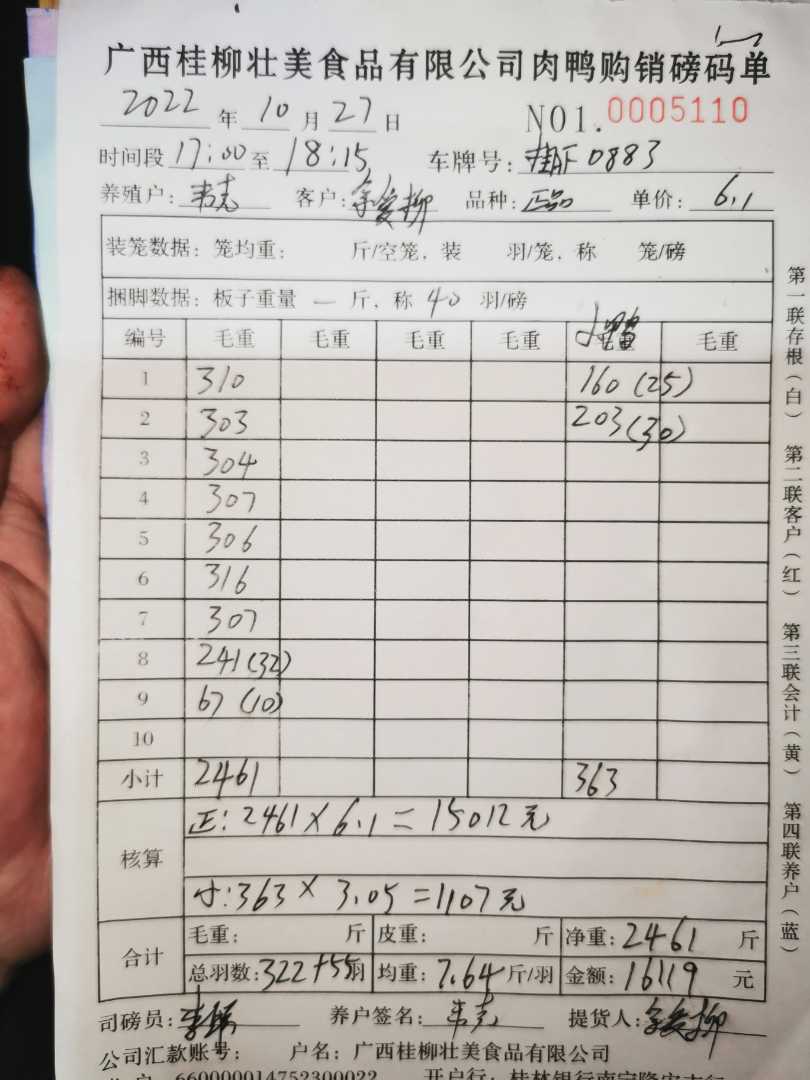 广西桂柳壮美食品有限公司肉鸭购销磅码单
2022 年 10 月 27 日 NO1. 0005110
时间段 17:00 至 18:15 车牌号: 0883
养殖户: 韦克 客户: 余爱柳 品种: 正品 单价: 6.1
装笼数据: 笼均重: 斤/空笼, 装 羽/笼, 称 笼/磅
捆脚数据: 板子重量 一 斤, 称 40 羽/磅
编号 毛重 毛重 毛重 毛重 小鸭 毛重
1 310 160 (25)
2 303 203 (30)
3 304
4 307
5 306
6 316
7 307
8 241 (32)
9 67 (10)
10
小计 2461 363
核算 正: 2461 × 6.1 = 15012 元
小: 363 × 3.05 = 1107 元
合计 毛重: 斤 皮重: 斤 净重: 2461 斤
总羽数: 322+55 羽 均重: 7.64 斤/羽 金额: 16119 元
司磅员: 养户签名: 韦克 提货人: 余爱柳
公司汇款账号: 户名: 广西桂柳壮美食品有限公司
660000014752300022 开户行: 桂林银行南宁隆安支行
第一联存根(白) 第二联客户(红) 第三联会计(黄) 第四联养户(蓝)